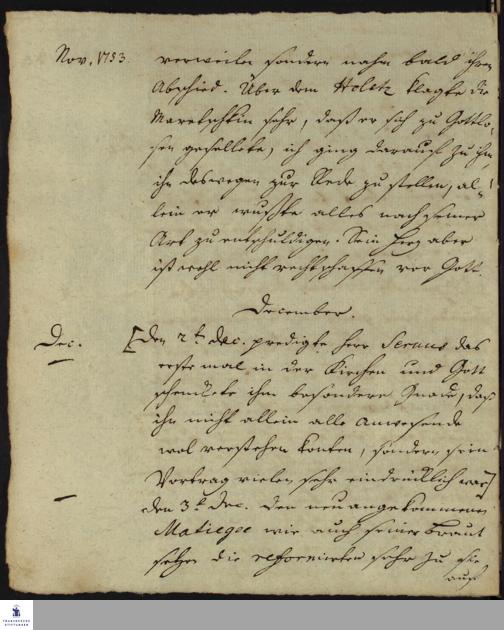 Nov. 1753.
verweilen sondern nahm bald ihren
Abschied. Über dem Holetz klagte die
Maretschkin sehr, daß er sich zu Gottlo-
sen gesellete, ich ging darauf zu ihm,
ihn deswegen zur Rede zu stellen, al-
lein er wußte alles nach seiner
Art zu entschuldigen. Sein Herz aber
ist wohl nicht rechtschaffen vor Gott.
December.
Dec.
[Den 2t Dec. predigte Herr Servus das
erste mal in der Kirchen und Gott
schenckete ihm besondere Gnade, daß
ihn nicht allein alle Anwesende
wol verstehen konten, sondern sein
Vortrag vielen sehr eindrücklich war]
den 3t Dec. Den neuangekommenen
Matiegee wie auch seiner Braut
setzen die reformirten sehr zu, sie
auf
FRANCKESCHE
STIFTUNGEN